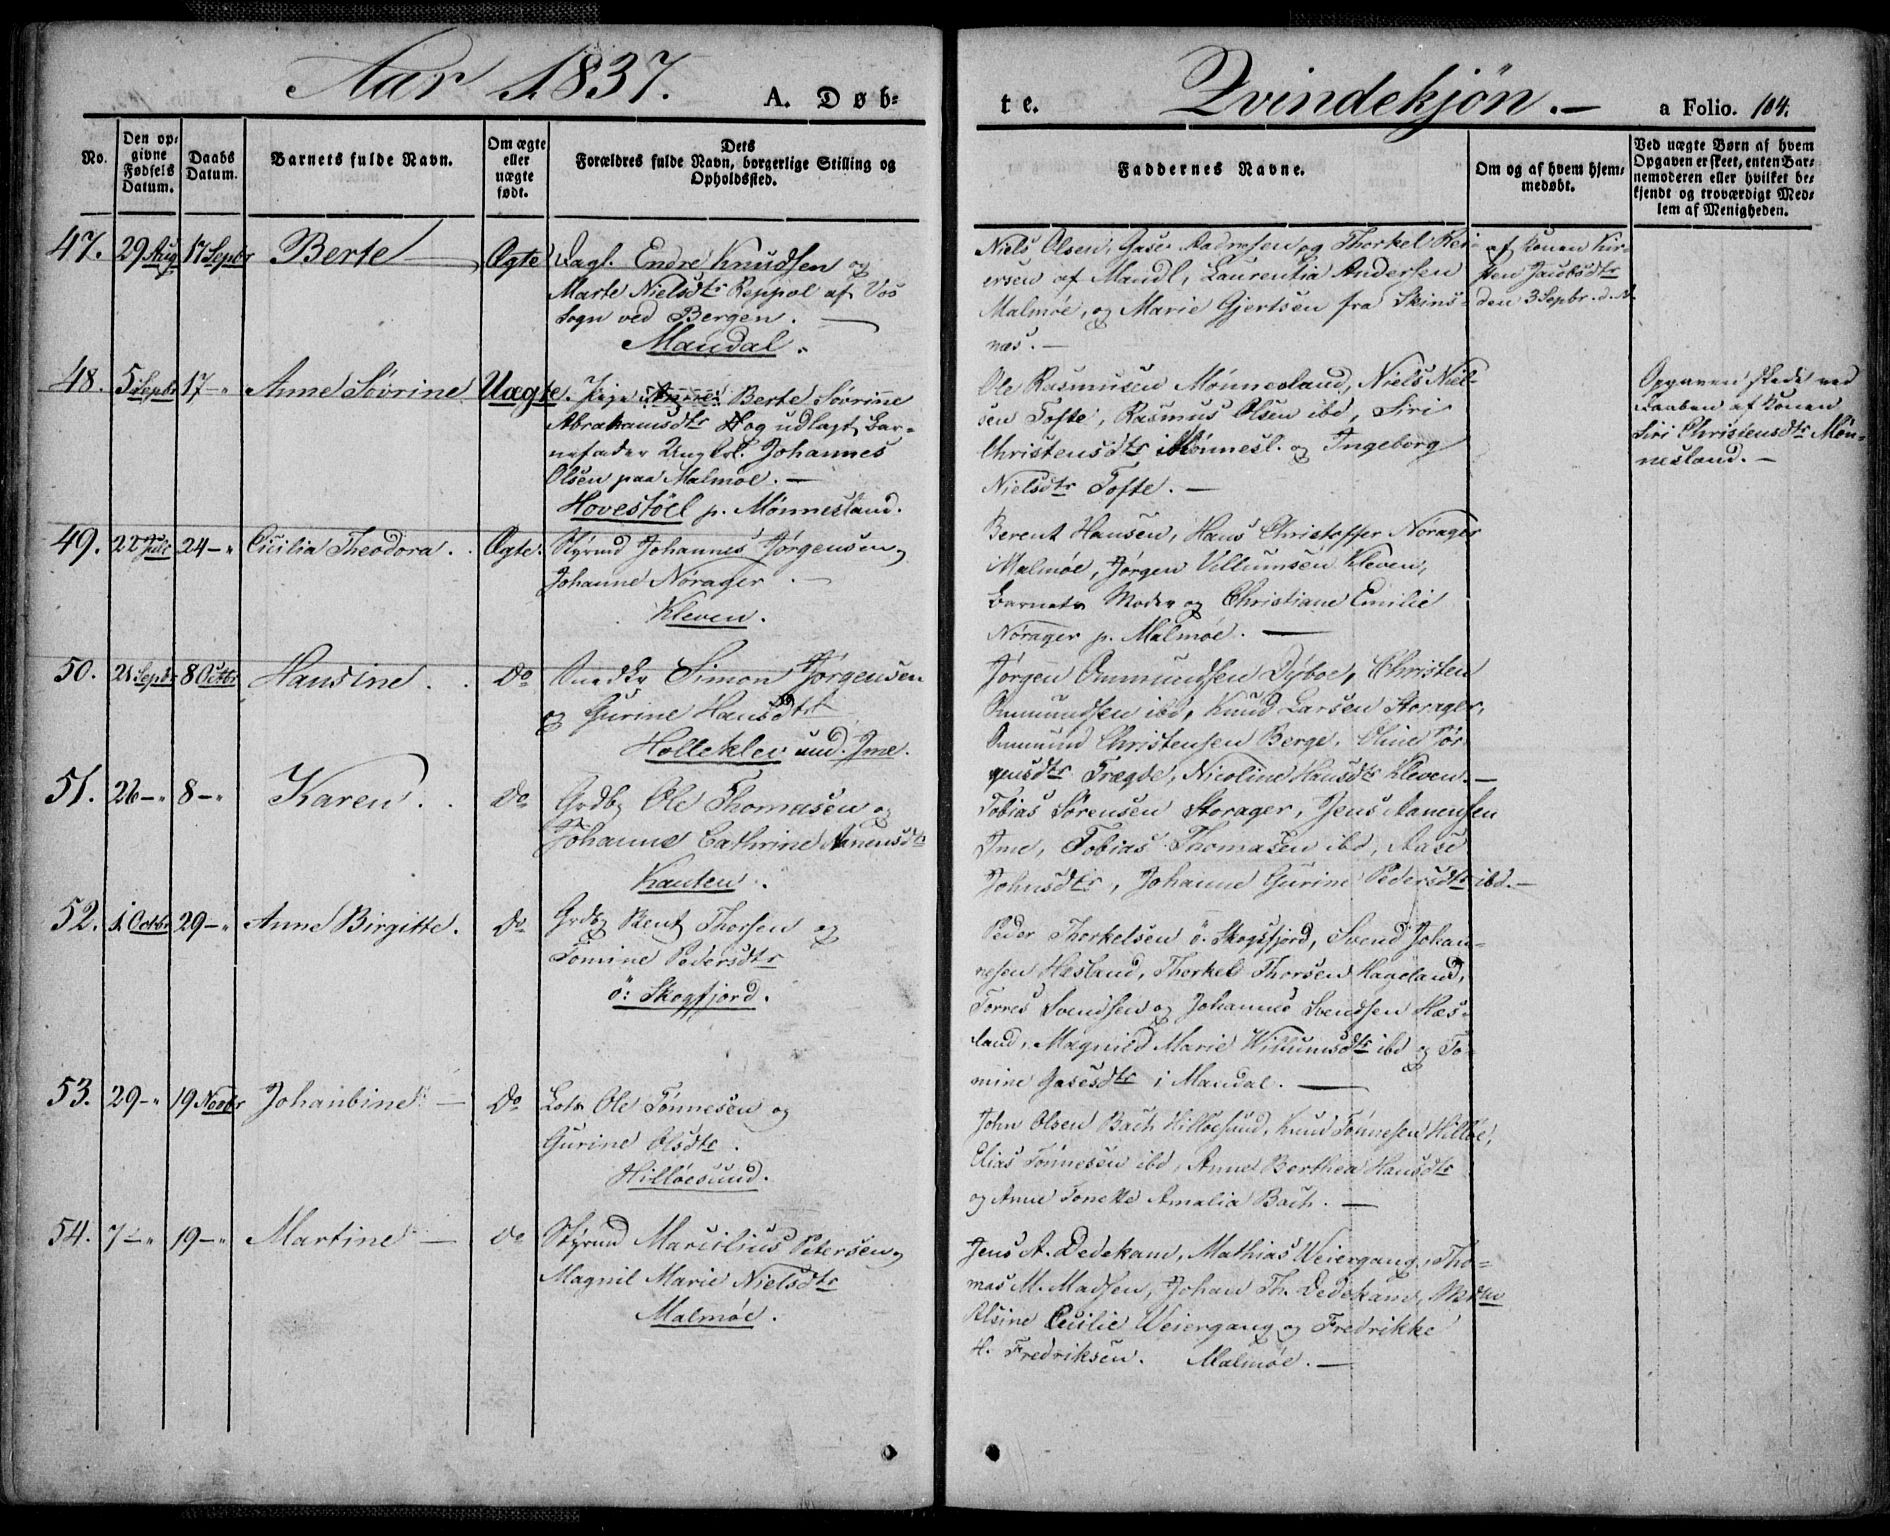 Aar 1837. A. Døb-
te. Qvindekjön.- a Folio. 104.
No. Den op-givne Fødsels Datum. Daabs Datum. Barnets fulde Navn. Om ægte eller uægte født. Dets Forældres fulde Navn, borgerlige Stilling og Opholdssted.
Faddernes Navne. Om og af hvem hjem-medøbt. Ved uægte Børn af hvem Opgaven er skeet, enten Bar-nemoderen eller hvilket be-kjendt og troværdigt Med-lem af Menigheden.
47. 29 Aug 17 Sepbr Berte Ægte Dagl. Endre Knudsen og
Marte Nielsdtr Reppol af Vos
Sogn ved Bergen. -
Mandal.
Niels Olsen, Gase Aadnesen og Thorkel Rei-
ersen af Mandl, Laurentia Andersen
Malmøe, og Marie Gjertsen fra Skins-
nas. -
af Konen Kir-
sten Jacobsdtr
den 3 Sepbr. d. A.
48. 5 Sepbr 17-" Anne Sövrine Uægte. Pige Berte Sövrine
Abrahamsdtr og udlagt Bar-
nefader Ungkl. Johannes
Olsen paa Malmøe. -
Hovestöel p. Mönnesland.
Ole Rasmusen Mönnesland, Niels Niel-
sen Tofte, Rasmus Olsen ibd, Siri
Christensdtr Mönnesl. og Ingeborg
Nielsdtr Tofte. -
Opgaven skede ved
Daaben af Konen
Siri Christensdtr Mön-
nesland. -
49. 22 Juli 24-" Cicilia Theodora. Ægte. Styrmd Johannes Jørgensen og
Johanne Nörager. -
Kleven.
Berent Hansen, Hans Christoffer Nörager
Malmøe, Jørgen Villumsen Kleven,
Barnets Moder og Christiane Emilie
Nörager p. Malmøe. -
50. 21 Sepbr 8 Octbr Hansine. Do Snedkr Simon Jörgensen
og Gurine Hansdtr
Holleklev und. Jme.
Jørgen Ommundsen Dyboe, Christen
Ommundsen ibd, Knud Larsen Storager,
Ommund Christensen Berge, Oline Jør-
gensdtr Trægde, Nicoline Hansdtr Kleven. -
51. 26-" 8-" Karen. Do Grdbg Ole Thomasen og
Johanne Cathrine Aanensdtr
Tobias Sørensen Storager, Jens Aanensen
Jme, Tobias Thomasen ibd, Aase
Johnsdtr, Johanne Gurine Pedersdtr ibd. -
52. 1 Octbr 29-" Anne Birgitte. Do Grdbg Bent Thorsen og
Tomine Pedersdtr
ö: Skogfjord.
Peder Thorkelsen ö. Skogsfjord, Svend Johan-
nesen Hæsland, Thorkel Thorsen Hageland,
Torres Svendsen og Johannes Svendsen Hæs-
land, Magnild Marie Willumsdtr ibd og To-
mine Gasesdtr i Mandal. -
53. 29-" 19 Novbr Johanbine - Do Lods Ole Tönnesen og
Gurine Olsdtr.
Hillöesund.
John Olsen Bach Hillöesund, Knud Tönnesen Hilløe,
Elias Tönnesen ibd, Anne Berthea Hansdtr
og Anne Tonette Amalia Bach. -
54. 7-" 19-" Martine - Do Styrmd Marcilius Petersen og
Magnil Marie Nielsdtr
Malmøe.
Jens A. Dedekam, Mathias Weiergang, Tho-
mas M. Madsen, Johan Th. Dedekam,
Elsine Cecilie Weiergang og Fredrikke
H. Fredriksen. Malmøe. -